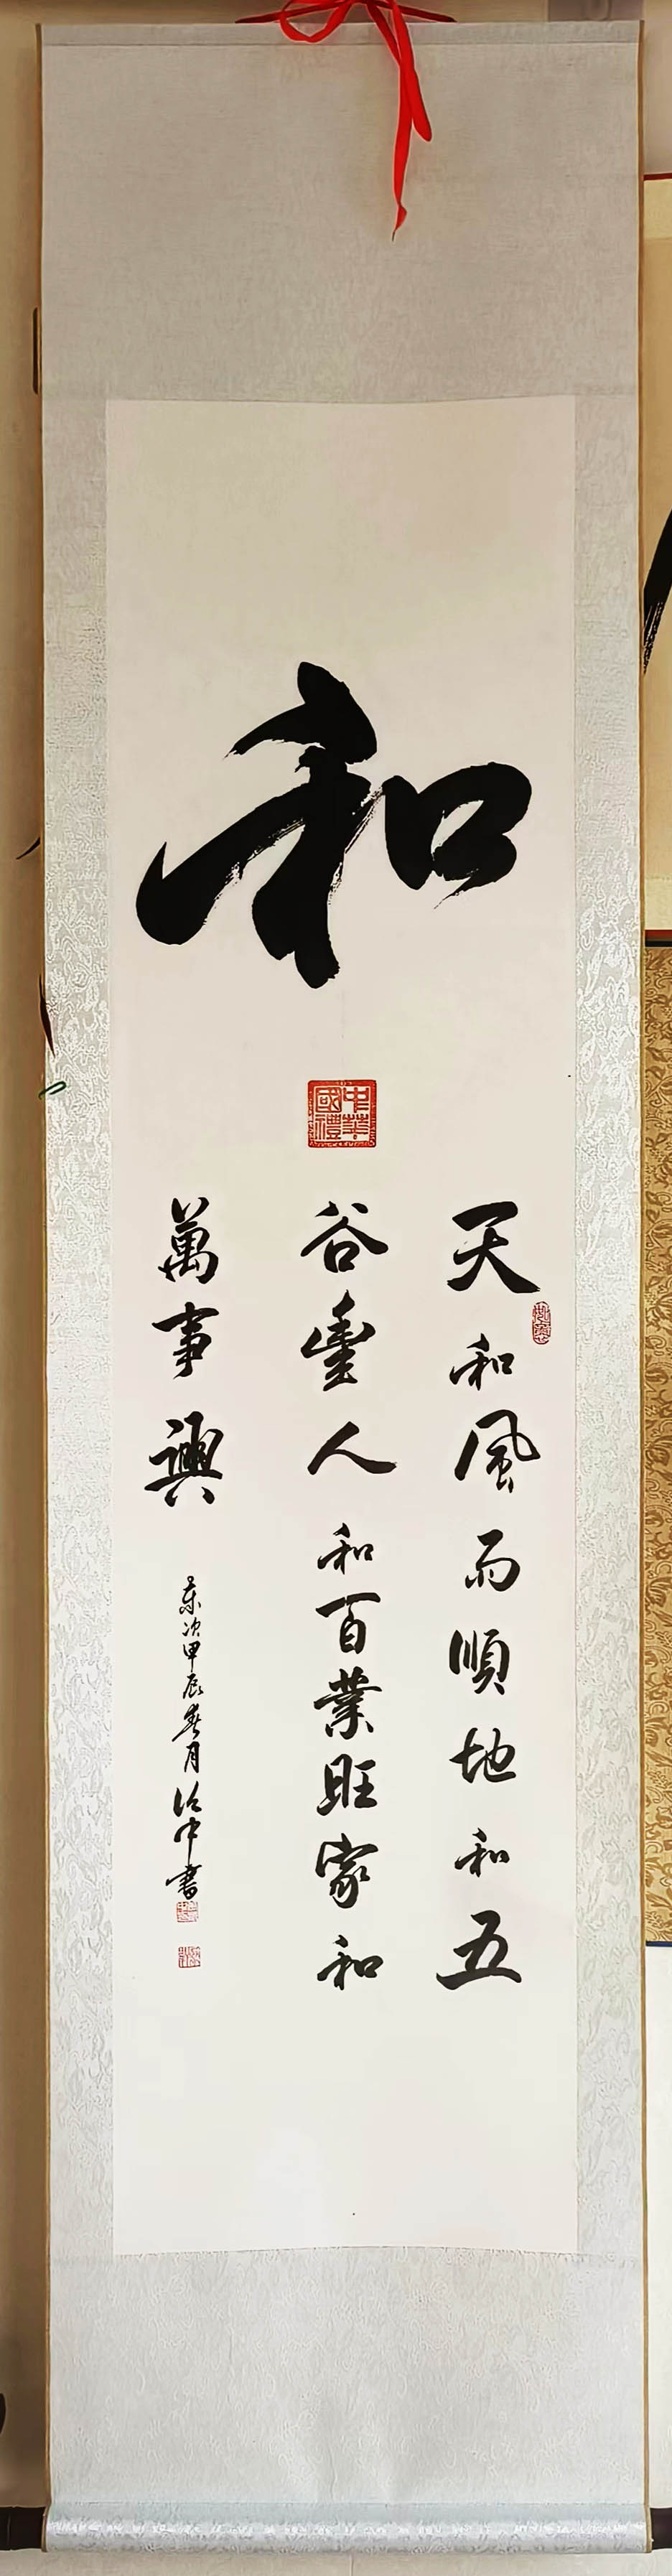 和
中華國禮
天和風雨順地和五
谷豐人和百業旺家和
萬事興
歲次甲辰春月法中書